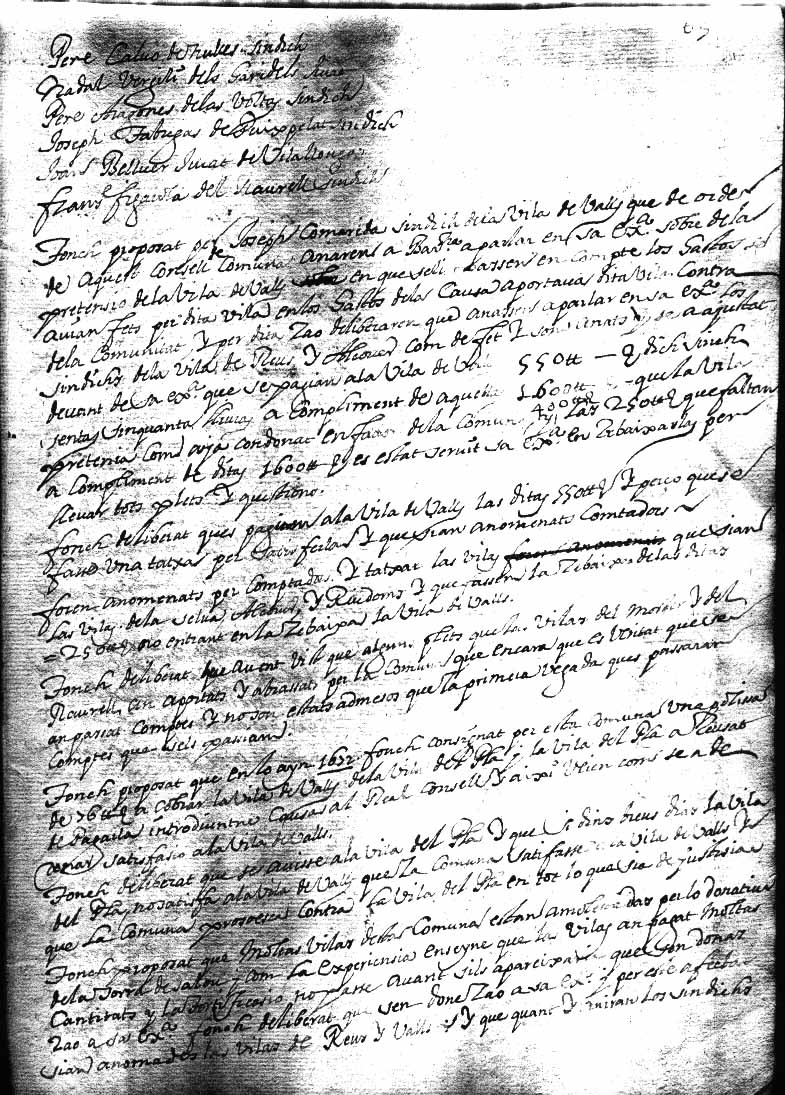 Pere Calvo de Rubes sindich
Nadal Vergili dels Garidels Jurat
Pere Aragones de las Voltes Sindich
Joseph Fabregas de Puixpelat sindich
Bellver Jurat de Vilallonga
Fransc figarola del Rourell sindich
Fonch proposat per Joseph Comerida sindich de la Vila de Valls que de orde
de Aquest Consell de Comuna Anaren a Barna a parlar en sa Exa sobre de la
pretensio de la Vila de Valls en que sels passassen en Compte los Gastos
avian fets per dita vila en los Gastos de la Causa aportava dita Vila Contra
de la Comunitat y per dita rao deliberaren que anassen a parlar en sa Exa los
Sindichs de la Vila de Reus y Alcover com de fet y son anats y se a ajustat
devant de sa Exa que se pagian a la Vila de Valls 550 tt — dich sinch
sentas sinquanta lliuras a Compliment de aquellas 1600 tt que la Vila
pretenia com aja condonat en favor de la Comuna las 250 tt que faltan
a Compliment de ditas 1600 tt es estat servit sa Exa en rebaixarlas per
llevar tots plets y questions.
fonch deliberat ques pagian a la Vila de Valls las ditas 550 tt y perço ques
fasse una tatxa per y que sian anomenats Comtadors
foren anomenats per Comptados y tatxar las vilas que sian
las Vilas de la Selva Alcover y Riudoms y que fassen la rebaixa de las ditas
= 250 tt no entrant en la rebaixa la Vila de Valls.
Fonch deliberat que avent vist que alguns plets que las Vilas del Morell y del
Rourell an y abrassats per la Comuna que encara que es veritat que se
an passat Comptes y no son estats admesos que la primera vegada ques passaran
Comptes que sels passian.
Fonch proposat que en lo ayn 1672 fonch consignat per esta Comuna una
de 76 tt a cobrar la Vila de Valls de la Vila del Pla y la Vila del Pla a Recusat
de Pagarla introduintne Causa al Real Consell y aixi Vejen com se a de
donar satisfasio a la Vila de Valls.
Fonch deliberat que se aviste a la Vila del Pla y que si dins breus dias la Vila
del Pla no satisfa a la Vila de Valls que la Comuna Satisfasse a la Vila de Valls y
que la Comuna prosseesca Contra la Vila del Pla en tot lo que sia de justisia
Fonch proposat que moltas Vilas de las Comuna estan amolestadas per lo donatiu
de la Torra de Salou y com la experiensia enseyne que las Vilas an pagat moltas
Cantitats y la fortificasio no passe avant sils apareixaria que sen donas
rao a sa Exa fonch deliberat que sen done rao a sa Exa y per esse afecte
sian anomades las Vilas de Reus y Valls y que quant y aniran los sindichs